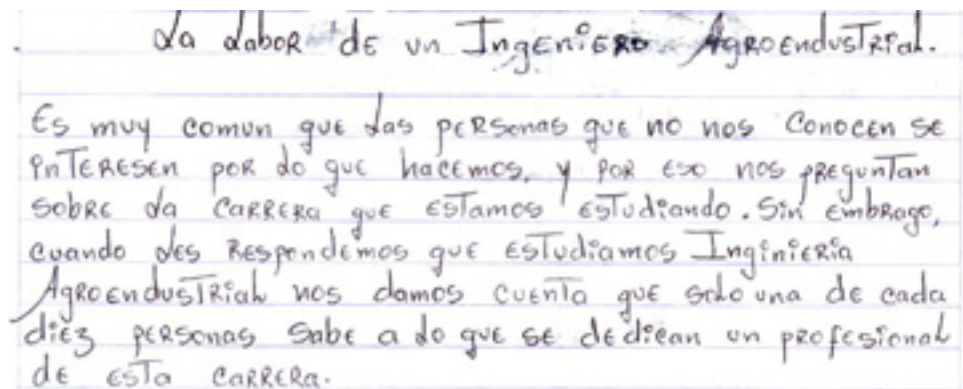 La Labor de un Ingeniero Agroendustrial.
Es muy comun que las personas que no nos conocen se
interesen por lo que hacemos, y por eso nos preguntan
sobre la carrera que estamos estudiando. Sin embrago,
cuando les respondemos que estudiamos Inginieria
Agroendustrial nos damos cuenta que solo una de cada
diez personas sabe a lo que se dedican un profesional
de esta carrera.